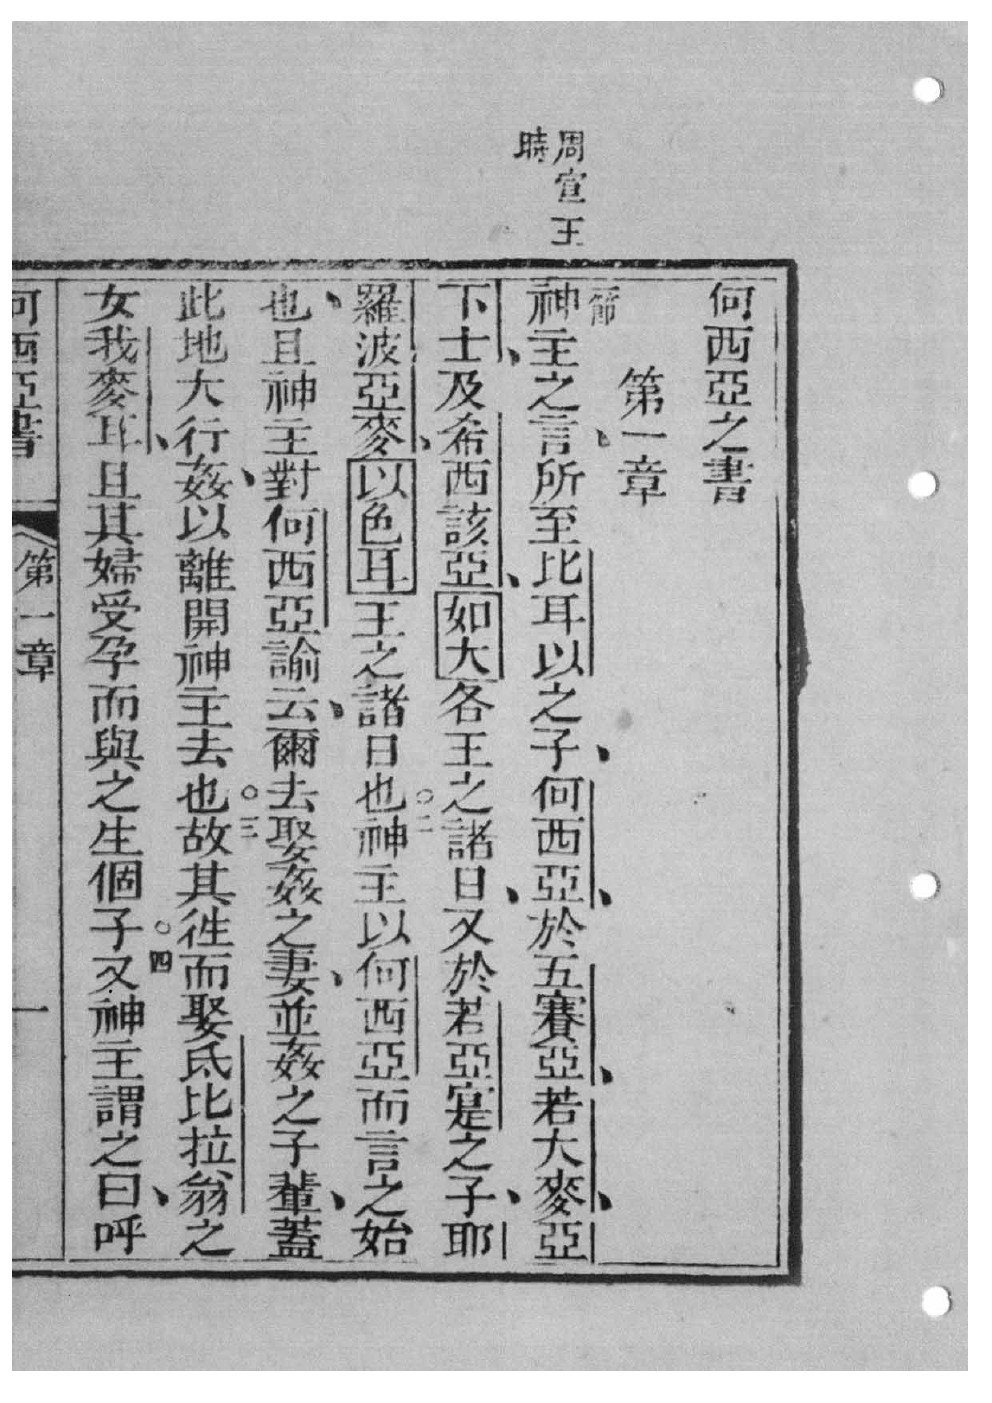 周宣王
時
何西亞之書
第一章
節
神主之言所至比耳以之子何西亞於五賽亞若大麥亞
下士及希西該亞如大各王之諸日又於若亞寔之子耶
羅波亞麥以色耳王之諸日也○二神主以何西亞而言之始
也且神主對何西亞諭云爾去娶姦之妻並姦之子輩蓋
此地大行姦以離開神主去也○三故其徃而娶氐比拉翁之
女我麥耳且其婦受孕而與之生個子○四又神主謂之曰呼
何西亞書 第一章 一